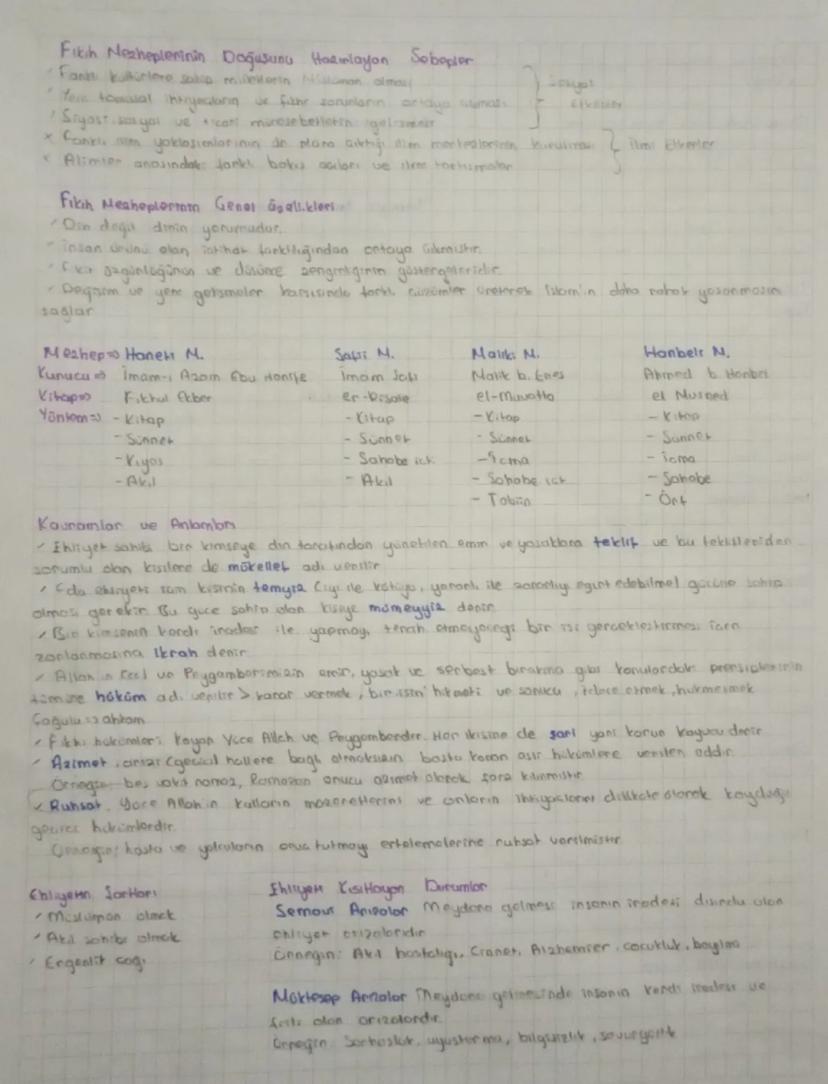 Fıkıh Mezheplerinin Doğuşunu Hazırlayan Sebepler
- Farklı kültürlere sahip milletlerin Müslüman olması
- Yeni toplumsal ihtiyaçların ve fıkhi sorunların ortaya çıkması
Etkenler
- Siyasi, sosyal ve ticari münasebetlerin gelişmesi
x Farklı ilim yaklaşımlarının ön plana çıktığı ilim merkezlerinin kurulması } İlmi Etkenler
x Alimler arasındaki farklı bakış açıları ve ilmi tartışmalar
Fıkıh Mezheplerinin Genel Özellikleri
- Din değil dinin yorumudur.
- İnsan ürünü olan içtihat farklılığından ortaya çıkmıştır.
- Fikir özgünlüğünün ve düşünce zenginliğinin göstergeleridir.
- Değişim ve yeni gelişmeler karşısında farklı çözümler üreterek İslam'ın daha rahat yaşanmasını
sağlar
Mezhep => Hanefi M. Şafii M. Maliki M. Hanbeli M.
Kurucu => İmam-ı Azam Ebu Hanife İmam Şafi Malik b. Enes Ahmed b. Hanbel
Kitap => Fıkhul Ekber er-Risale el-Muvatta el Müsned
Yöntem => - Kitap - Kitap - Kitap - Kitap
- Sünnet - Sünnet - Sünnet - Sünnet
- Kıyas - Sahabe ict. - İcma - İcma
- Akıl - Akıl - Sahabe ict - Sahabe
- Tabiin - Örf
Kavramlar ve Anlamları
- Ehliyet sahibi bir kimseye din tarafından yöneltilen emir ve yasaklara teklif ve bu tekliflerden
sorumlu olan kişilere de mükellef adı verilir
- Eda ehliyeti tam kişinin temyiz (iyi ile kötüyü, yararlı ile zararlıyı ayırt edebilme) gücüne sahip
olması gerekir. Bu güce sahip olan kişiye mümeyyiz denir
- Bir kimsenin kendi iradesi ile yapmay, tercih etmeyeceği bir işi gerçekleştirmesi için
zorlanmasına İkrah denir.
- Allah'ın Peygamberimizin emir, yasak ve serbest bırakma gibi konulardaki prensiplerinin
tümüne hüküm adı verilir > karar vermek, bir işin hikmeti ve sonucu, hükmetmek
Çoğulu => ahkam
- Fıkhi hükümleri koyan Yüce Allah ve Peygamberdir. Her ikisine de şari yani kanun koyucu denir
- Azimet, arızi (geçici) hallere bağlı olmaksızın başta konan asıl hükümlere verilen addır.
Örneğin beş vakit namaz, Ramazan orucu azimet olarak farz kılınmıştır
- Ruhsat, Yüce Allah'ın kulların mazeretlerini ve onların ihtiyaçlarını dikkate alarak koyduğu
geçici hükümlerdir.
Örneğin; hasta ve yolcuların oruç tutmayı ertelemelerine ruhsat verilmiştir
Ehliyetin Şartları
- Müslüman olmak
- Akıl sahibi olmak
- Ergenlik çağı
Ehliyeti Kısıtlayan Durumlar
Semavi Arızalar Meydana gelmesi insanın iradesi dışında olan
ehliyet arızalarıdır
Örneğin: Akıl hastalığı, Alzheimer, çocukluk, bayılma
Müktesep Arızalar Meydana gelmesinde insanın kendi iradesi ve
etki olan arızalardır.
Örneğin Sarhoşluk, uyuşturma, bilgisizlik, savurganlık